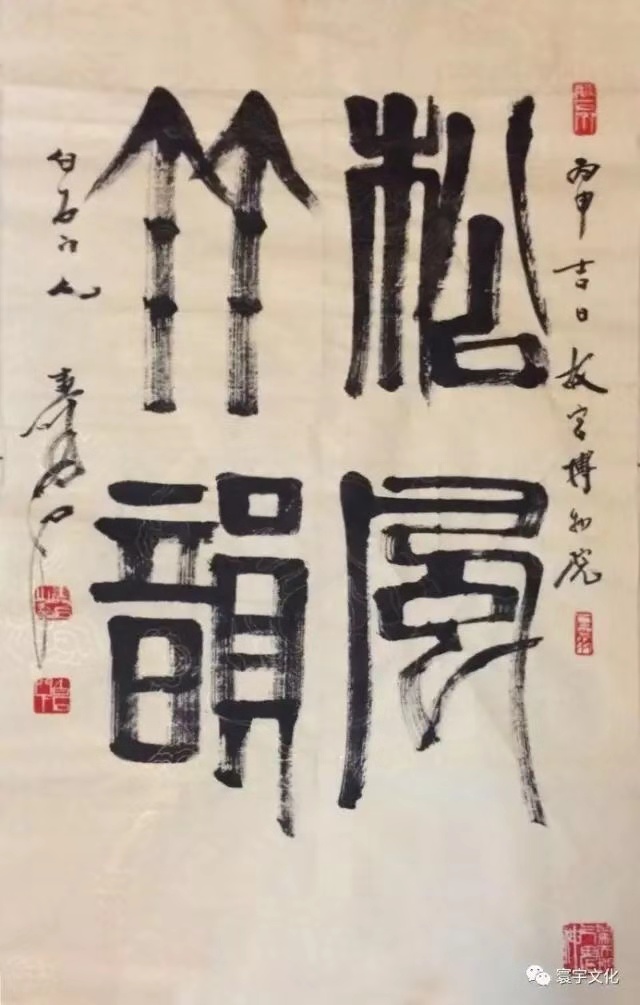 丙申吉日故宫博物院
松風
竹韻
白石门人
寰宇文化